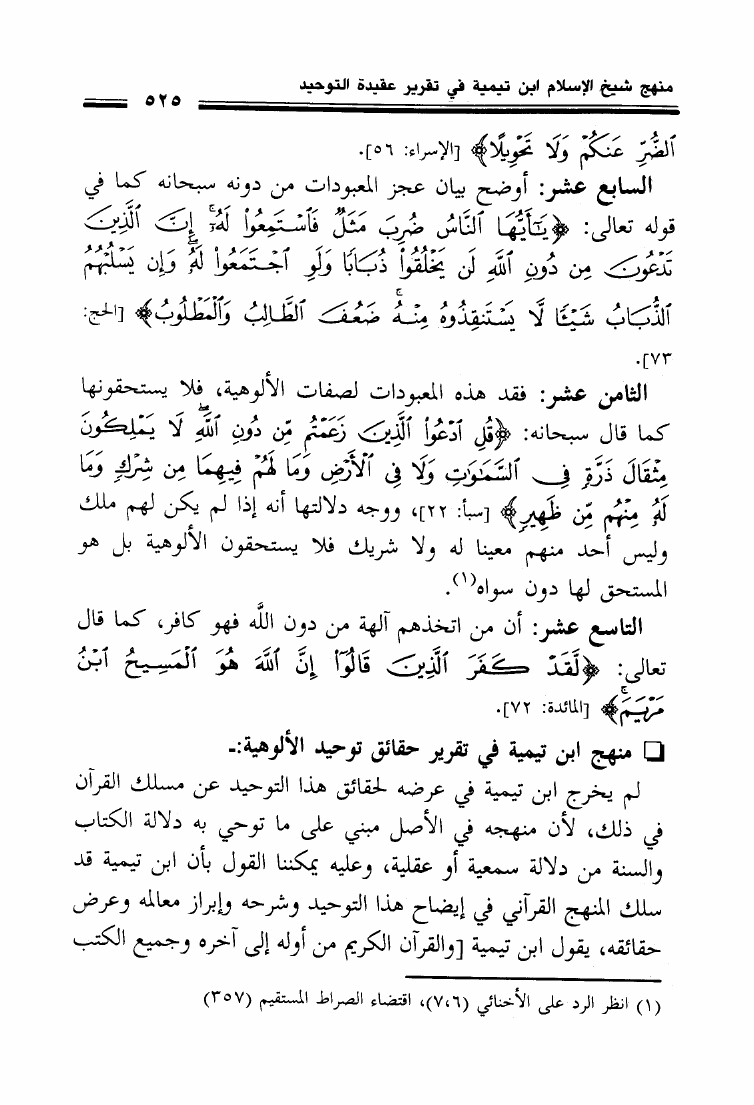 منهج شيخ الإسلام ابن تيمية في تقرير عقيدة التوحيد
٥٢٥
ٱلضُّرِّ عَنكُمْ وَلَا تَحْوِيلًا﴾ [الإسراء: ٥٦].
السابع عشر: أوضح بيان عجز المعبودات من دونه سبحانه كما في
قوله تعالى: ﴿يَٰٓأَيُّهَا ٱلنَّاسُ ضُرِبَ مَثَلٌ فَٱسْتَمِعُوا۟ لَهُۥٓ ۚ إِنَّ ٱلَّذِينَ
تَدْعُونَ مِن دُونِ ٱللَّهِ لَن يَخْلُقُوا۟ ذُبَابًا وَلَوِ ٱجْتَمَعُوا۟ لَهُۥ ۖ وَإِن يَسْلُبْهُمُ
ٱلذُّبَابُ شَيْـًٔا لَّا يَسْتَنقِذُوهُ مِنْهُ ۚ ضَعُفَ ٱلطَّالِبُ وَٱلْمَطْلُوبُ﴾ [الحج:
٧٣].
الثامن عشر: فقد هذه المعبودات لصفات الألوهية، فلا يستحقونها
كما قال سبحانه: ﴿قُلِ ٱدْعُوا۟ ٱلَّذِينَ زَعَمْتُم مِّن دُونِ ٱللَّهِ ۖ لَا يَمْلِكُونَ
مِثْقَالَ ذَرَّةٍ فِى ٱلسَّمَٰوَٰتِ وَلَا فِى ٱلْأَرْضِ وَمَا لَهُمْ فِيهِمَا مِن شِرْكٍ وَمَا
لَهُۥ مِنْهُم مِّن ظَهِيرٍ﴾ [سبأ: ٢٢]، ووجه دلالتها أنه إذا لم يكن لهم ملك
وليس أحد منهم معينا له ولا شريك فلا يستحقون الألوهية بل هو
المستحق لها دون سواه(١).
التاسع عشر: أن من اتخذهم آلهة من دون اللَّه فهو كافر، كما قال
تعالى: ﴿لَقَدْ كَفَرَ ٱلَّذِينَ قَالُوٓا۟ إِنَّ ٱللَّهَ هُوَ ٱلْمَسِيحُ ٱبْنُ
مَرْيَمَ ۚ﴾ [المائدة: ٧٢].
❑ منهج ابن تيمية في تقرير حقائق توحيد الألوهية:ـ
لم يخرج ابن تيمية في عرضه لحقائق هذا التوحيد عن مسلك القرآن
في ذلك، لأن منهجه في الأصل مبني على ما توحي به دلالة الكتاب
والسنة من دلالة سمعية أو عقلية، وعليه يمكننا القول بأن ابن تيمية قد
سلك المنهج القرآني في إيضاح هذا التوحيد وشرحه وإبراز معالمه وعرض
حقائقه، يقول ابن تيمية [والقرآن الكريم من أوله إلى آخره وجميع الكتب
(١) انظر الرد على الأخنائي (٧،٦)، اقتضاء الصراط المستقيم (٣٥٧)